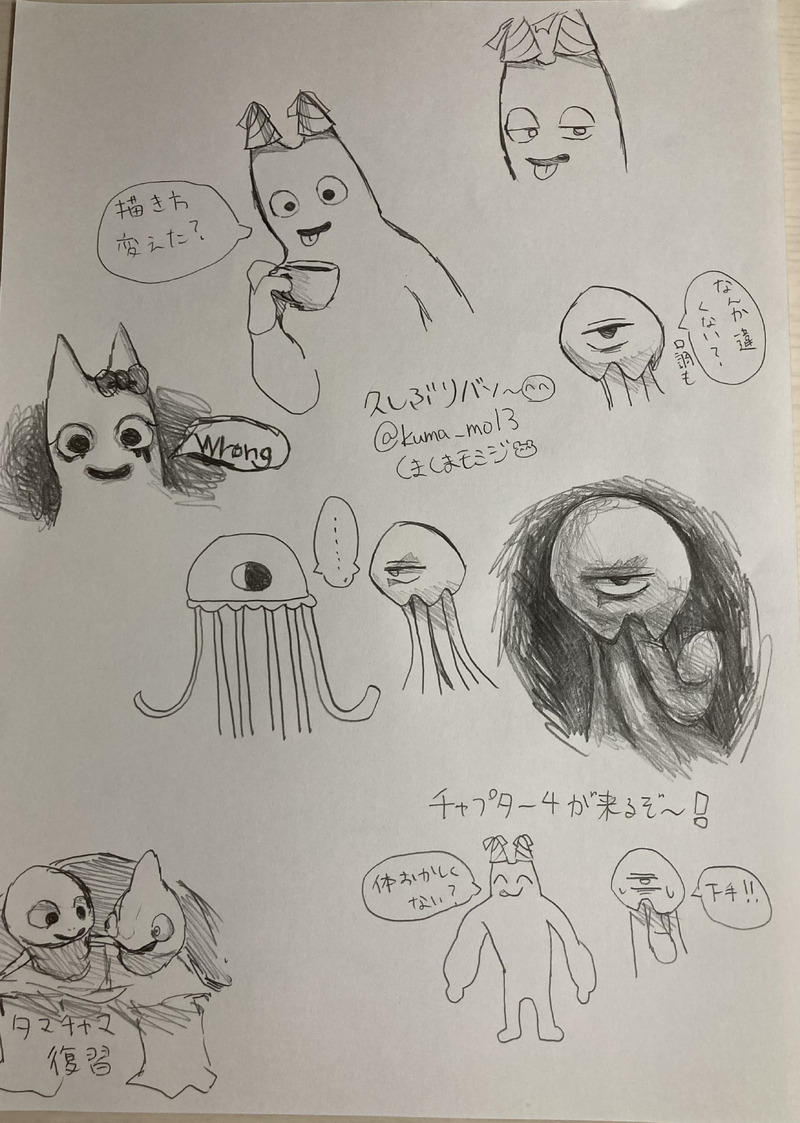 描き方
変えた?
なんか違
くない?
口調も
久しぶりバン~
@kuma_mo13
くまくまモミジ
Wrong
......
チャプター4が来るぞ~!
体おかしく
ない?
下手!!
タマチャマ
復習